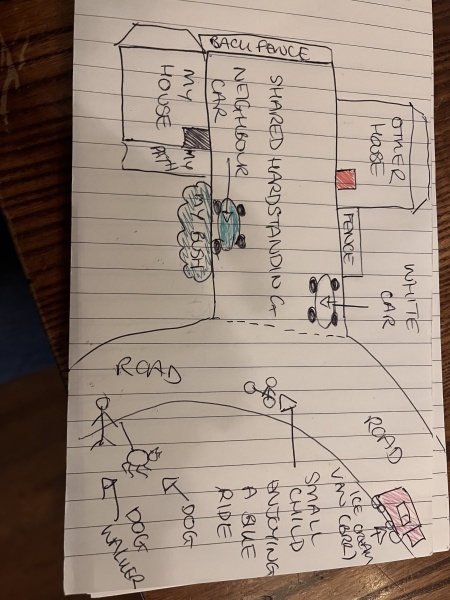 BACK FENCE
OTHER
HOUSE
MY
HOUSE
MY
PATH
NEIGHBOUR
CAR
SHARED HARDSTANDING
FENCE
MY BUSH
WHITE
CAR
ROAD
ROAD
ICE CREAM
VAN
SMALL
CHILD
ENJOYING
A BIKE
RIDE
DOG
DOG
WALKER